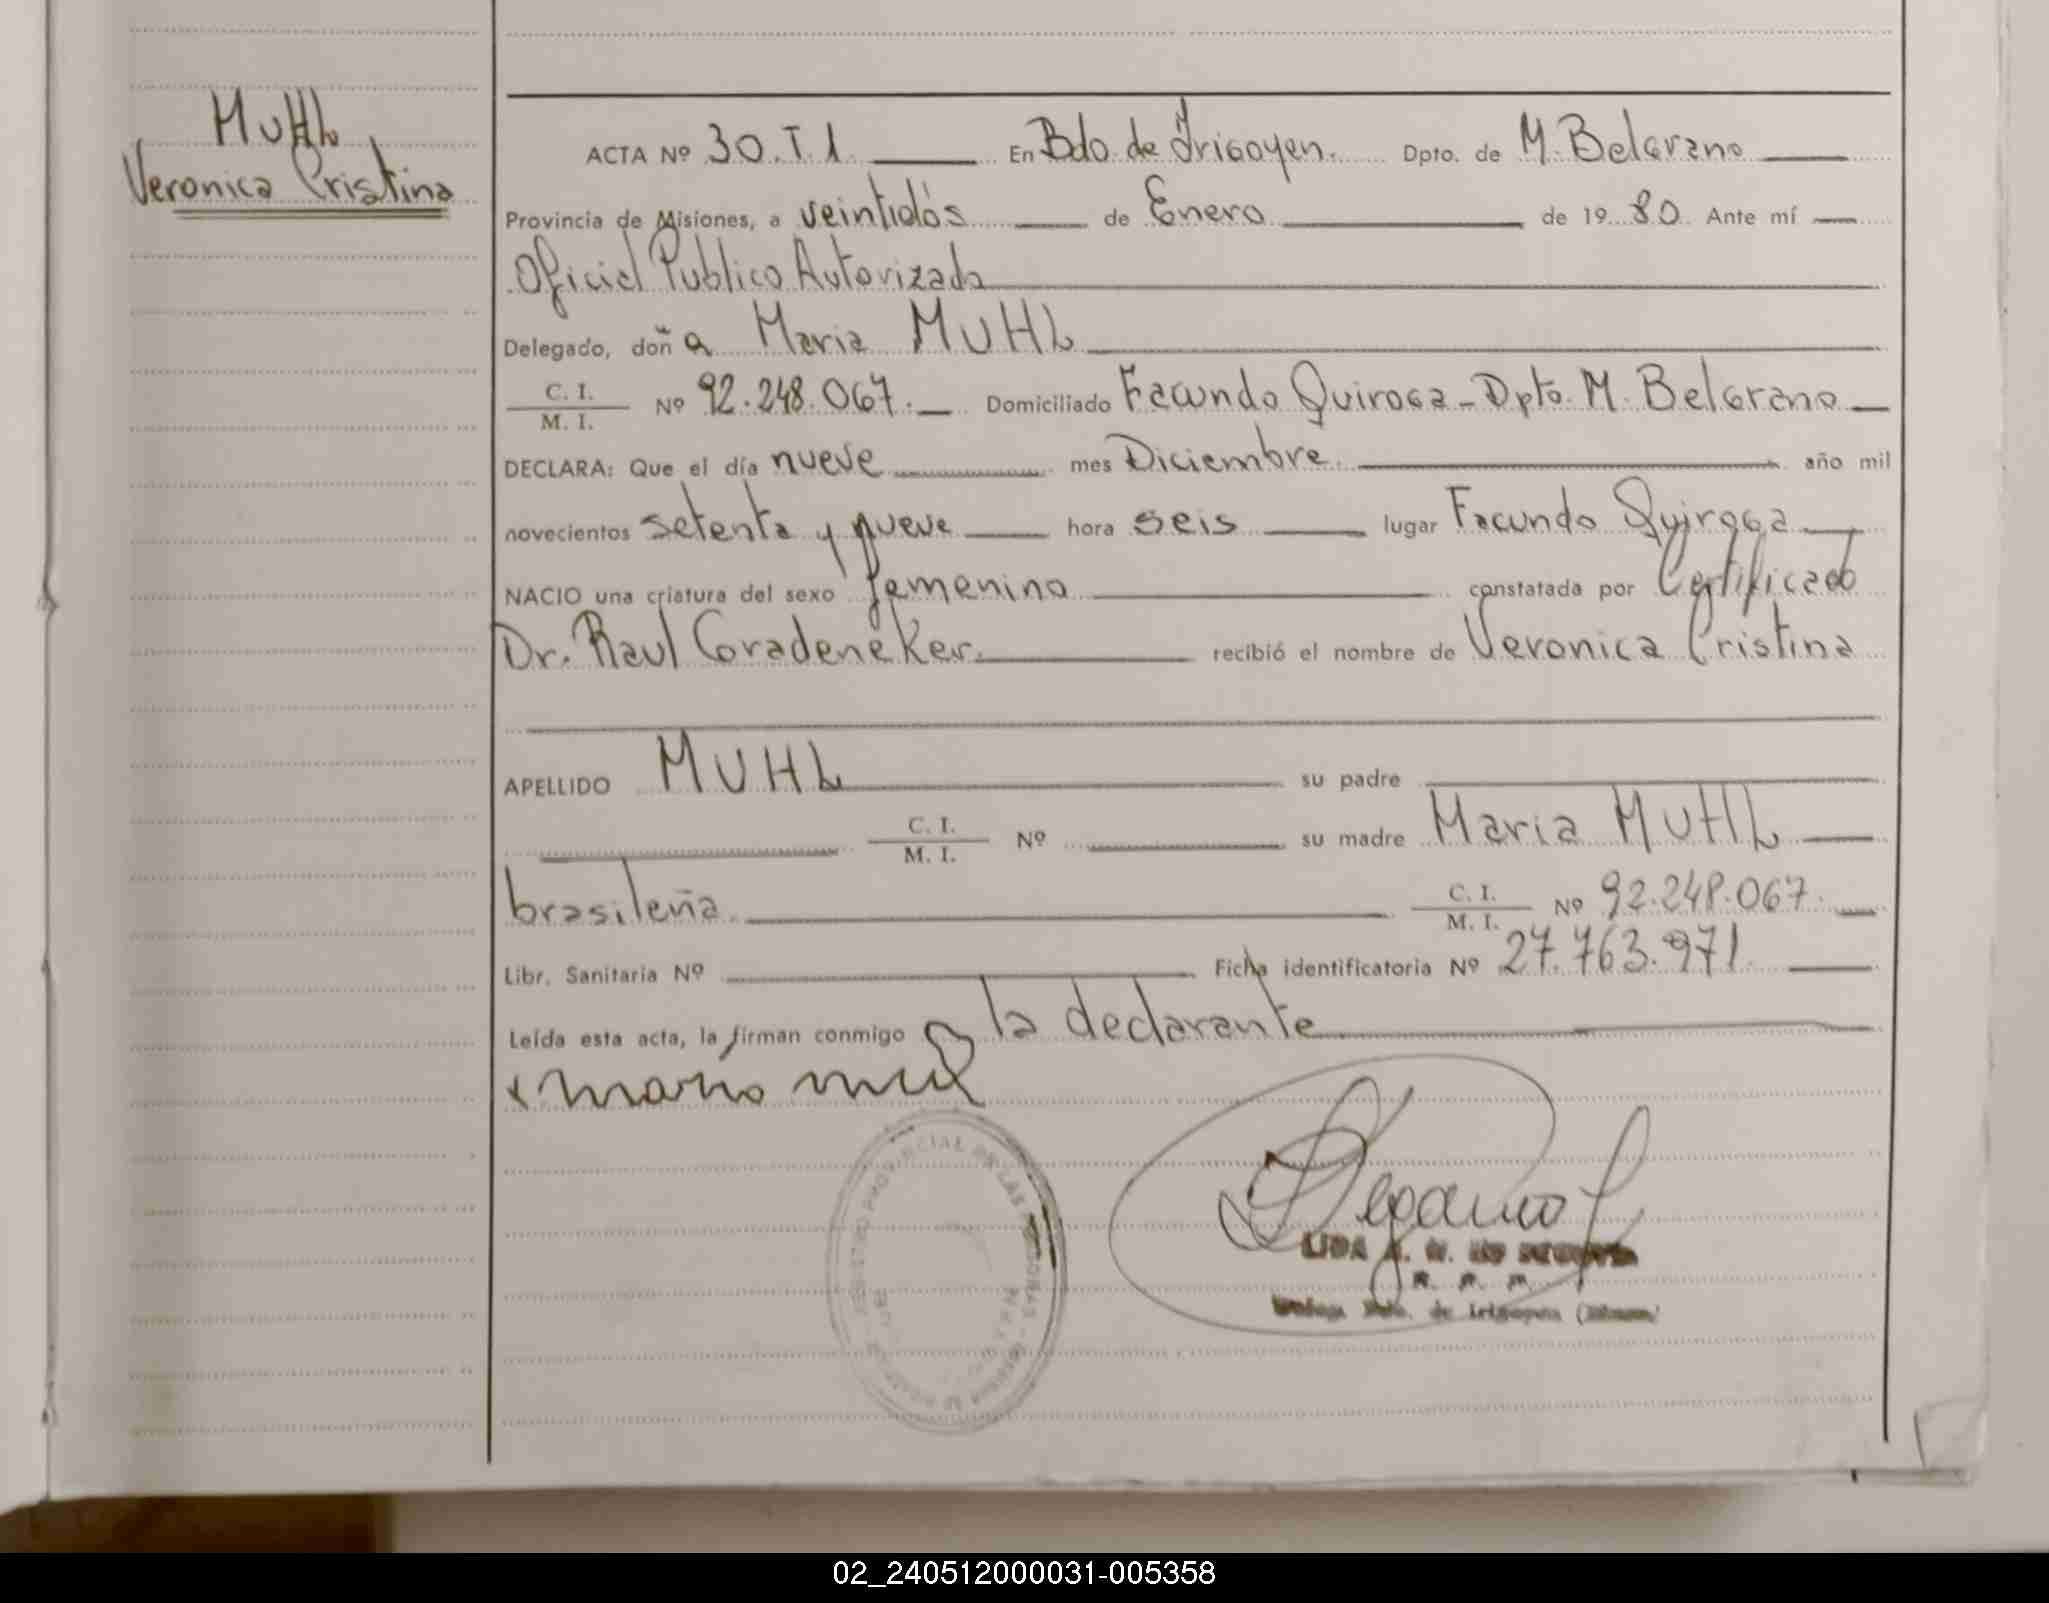 MUHL
Veronica Cristina
ACTA Nº 30.T.1 En Bdo. de Irigoyen. Dpto. de M. Belgrano
Provincia de Misiones, a veintidós de Enero de 1980 Ante mí
Oficial Publico Autorizado
Delegado, doña Maria MUHL
C. I. / M. I. Nº 92.248.067. Domiciliado Facundo Quiroga - Dpto. M. Belgrano
DECLARA: Que el día nueve mes Diciembre año mil
novecientos setenta y nueve hora seis lugar Facundo Quiroga
NACIO una criatura del sexo femenino constatada por Certificado
Dr. Raul Gradeneker. recibió el nombre de Veronica Cristina
APELLIDO MUHL su padre
C. I. / M. I. Nº su madre Maria MUHL
brasileña C. I. / M. I. Nº 92.248.067.
Libr. Sanitaria Nº Ficha identificatoria Nº 27.763.971.
Leída esta acta, la firman conmigo la declarante
x maria mul
PROVINCIAL DE LAS PERSONAS
LIDA
de Irigoyen
02_240512000031-005358